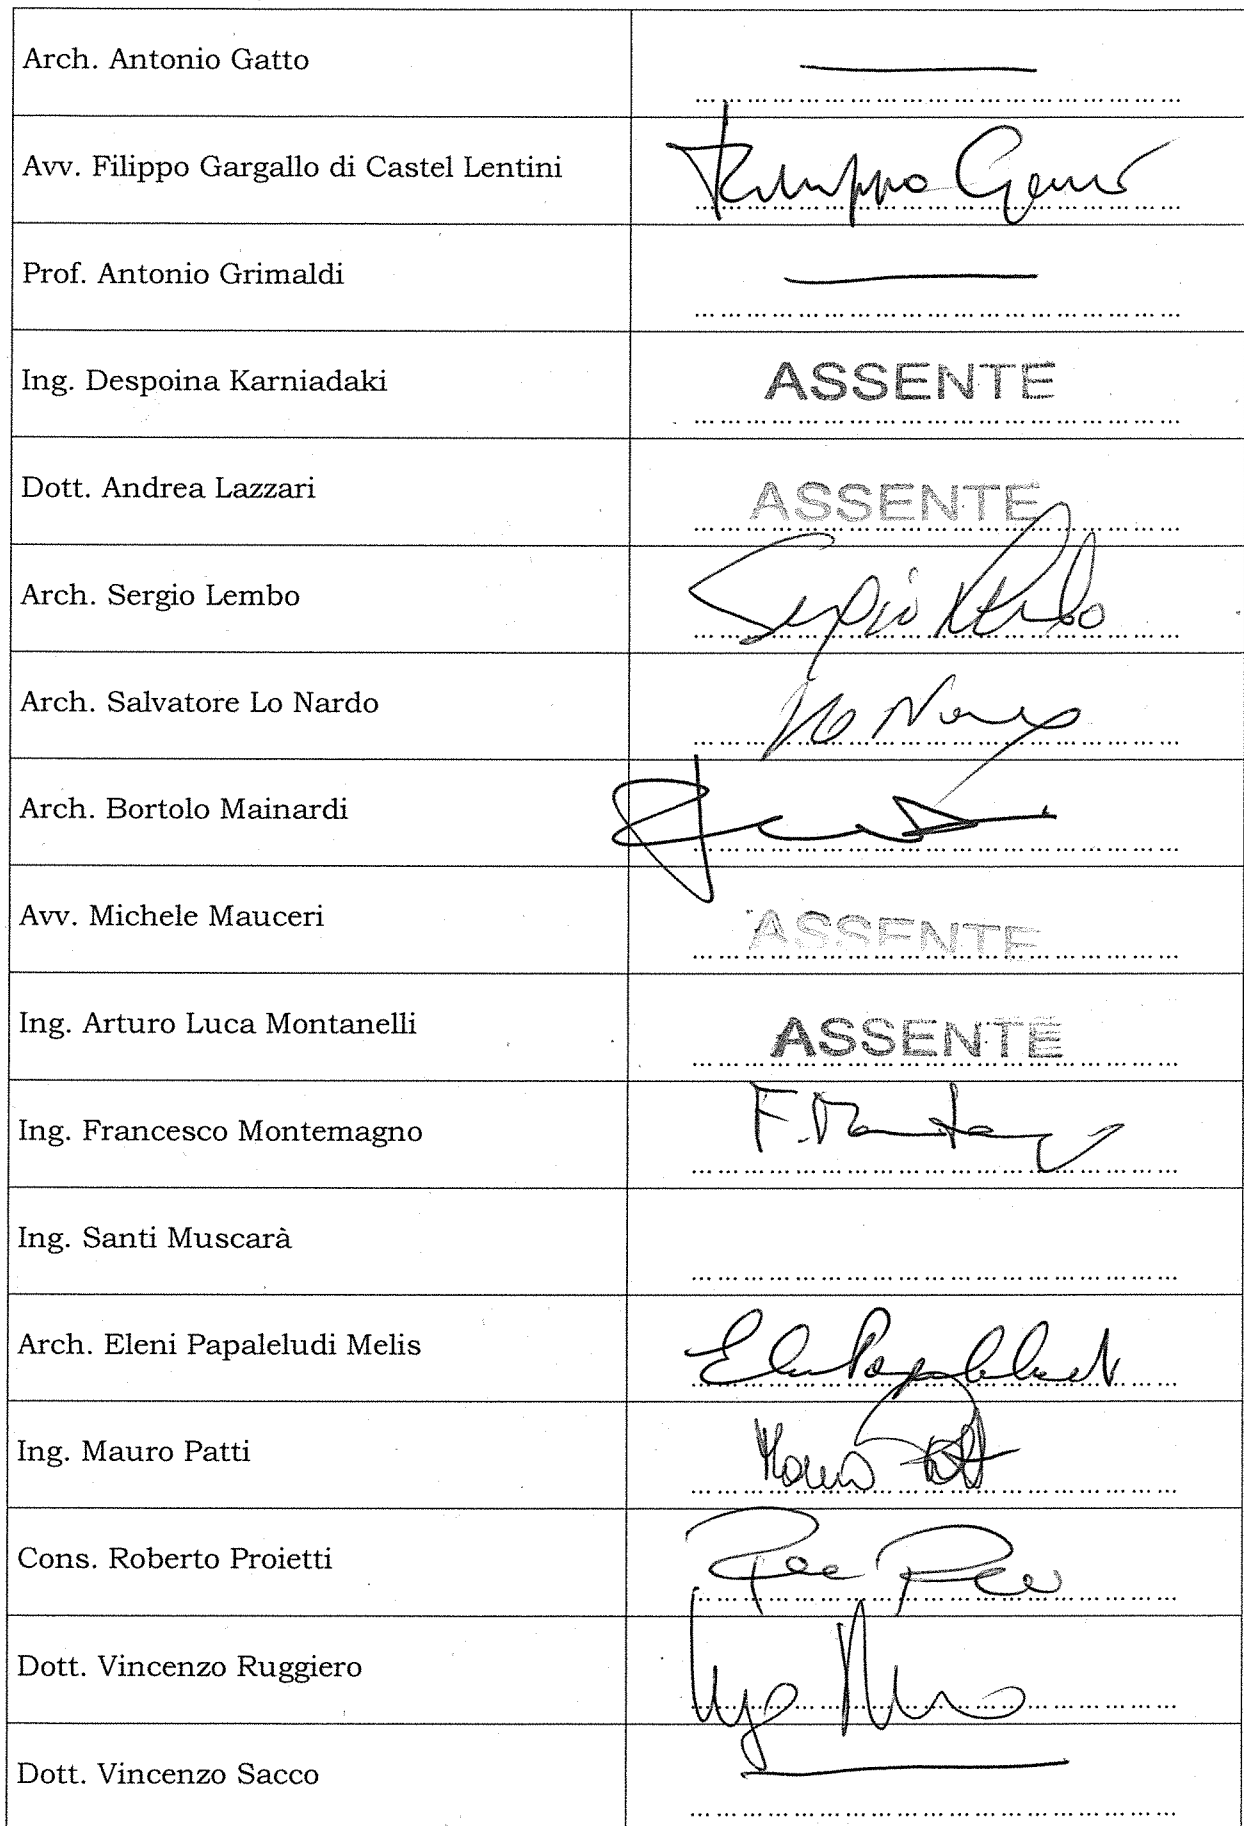 Arch. Antonio Gatto
Avv. Filippo Gargallo di Castel Lentini
Filippo
Prof. Antonio Grimaldi
Ing. Despoina Karniadaki ASSENTE
Dott. Andrea Lazzari ASSENTE
Arch. Sergio Lembo Sergio Lembo
Arch. Salvatore Lo Nardo Lo Nardo
Arch. Bortolo Mainardi
Avv. Michele Mauceri ASSENTE
Ing. Arturo Luca Montanelli ASSENTE
Ing. Francesco Montemagno
Ing. Santi Muscarà
Arch. Eleni Papaleludi Melis
Ing. Mauro Patti Mauro Patti
Cons. Roberto Proietti
Dott. Vincenzo Ruggiero
Dott. Vincenzo Sacco